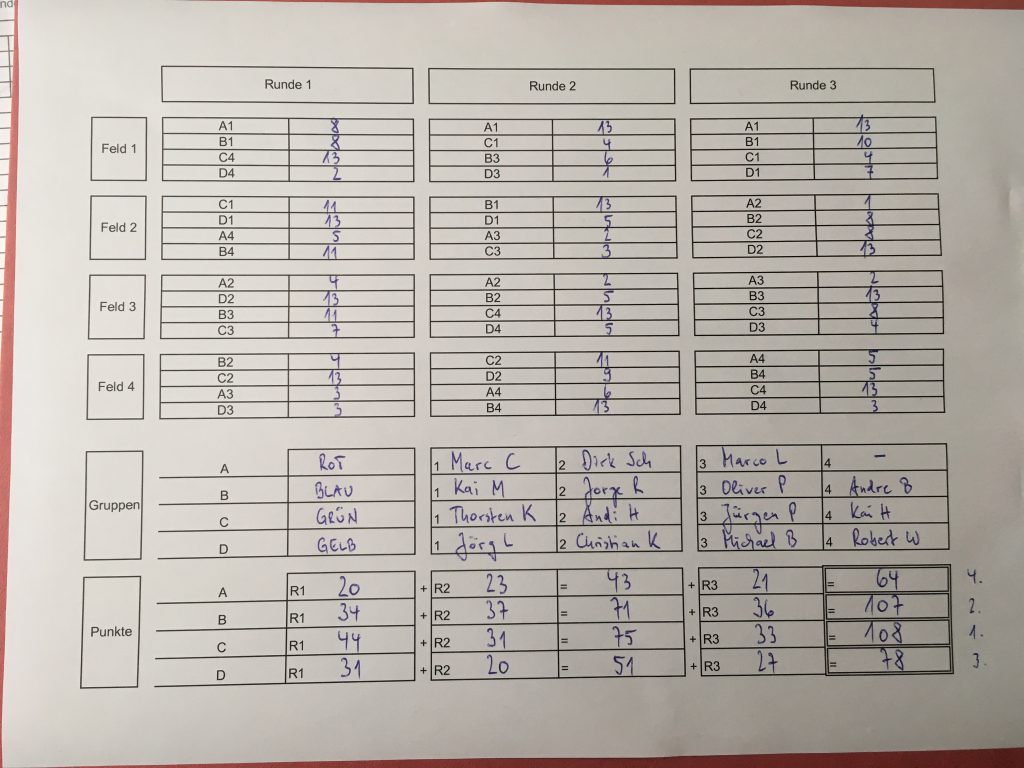 Runde 1 Runde 2 Runde 3
Feld 1
A1 8 A1 13 A1 13
B1 8 C1 4 B1 10
C4 13 B3 6 C1 4
D4 2 D3 1 D1 7
Feld 2
C1 11 B1 13 A2 1
D1 13 D1 5 B2 8
A4 5 A3 2 C2 8
B4 11 C3 3 D2 13
Feld 3
A2 4 A2 2 A3 2
D2 13 B2 5 B3 13
B3 11 C4 13 C3 8
C3 7 D4 5 D3 4
Feld 4
B2 4 C2 11 A4 5
C2 13 D2 9 B4 5
A3 3 A4 6 C4 13
D3 3 B4 13 D4 3
Gruppen
A ROT 1 Marc C 2 Dirk Sch 3 Marco L 4 –
B BLAU 1 Kai M 2 Jorge R 3 Oliver P 4 Andre B
C GRÜN 1 Thorsten K 2 Andi H 3 Jürgen P 4 Kai H
D GELB 1 Jörg L 2 Christian K 3 Michael B 4 Robert W
Punkte
A R1 20 + R2 23 = 43 + R3 21 = 64 4.
B R1 34 + R2 37 = 71 + R3 36 = 107 2.
C R1 44 + R2 31 = 75 + R3 33 = 108 1.
D R1 31 + R2 20 = 51 + R3 27 = 78 3.